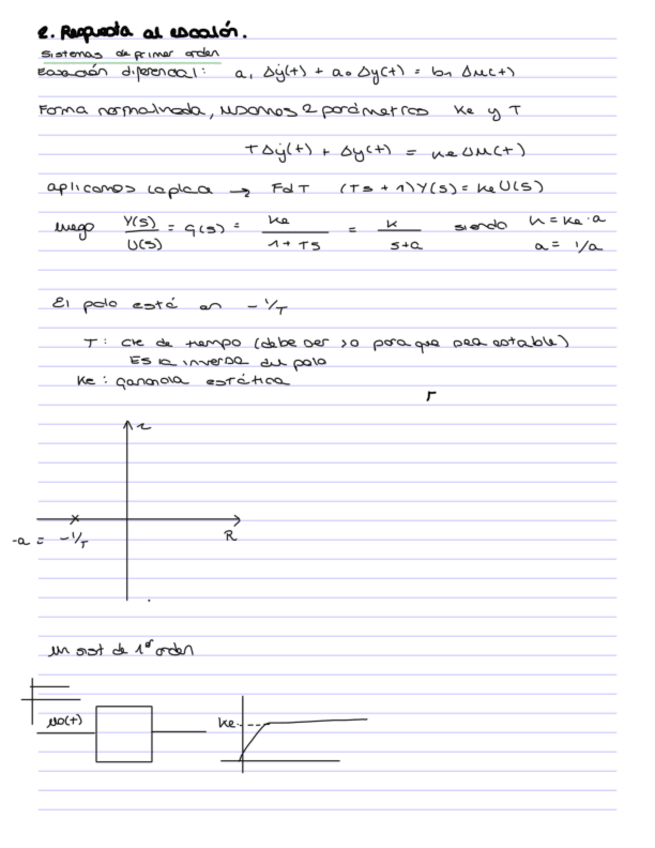 2. Respuesta al escalón.
Sistemas de primer orden
Ecuación diferencial: a₁ Δẏ(t) + a₀ Δy(t) = b₁ Δu(t)
Forma normalizada, usamos 2 parámetros Ke y T
TΔẏ(t) + Δy(t) = Ke Δu(t)
aplicamos laplace → FdT (Ts + 1)Y(s) = Ke U(s)
luego Y(s)/U(s) = G(s) = Ke/(1 + Ts) = K/(s+a) siendo K = Ke·a
a = 1/a
El polo está en -1/T
T: cte de tiempo (debe ser >0 para que sea estable)
Es la inversa del polo
Ke: ganancia estática
r
R
-a = -1/T
un sist de 1er orden
u0(t)
Ke